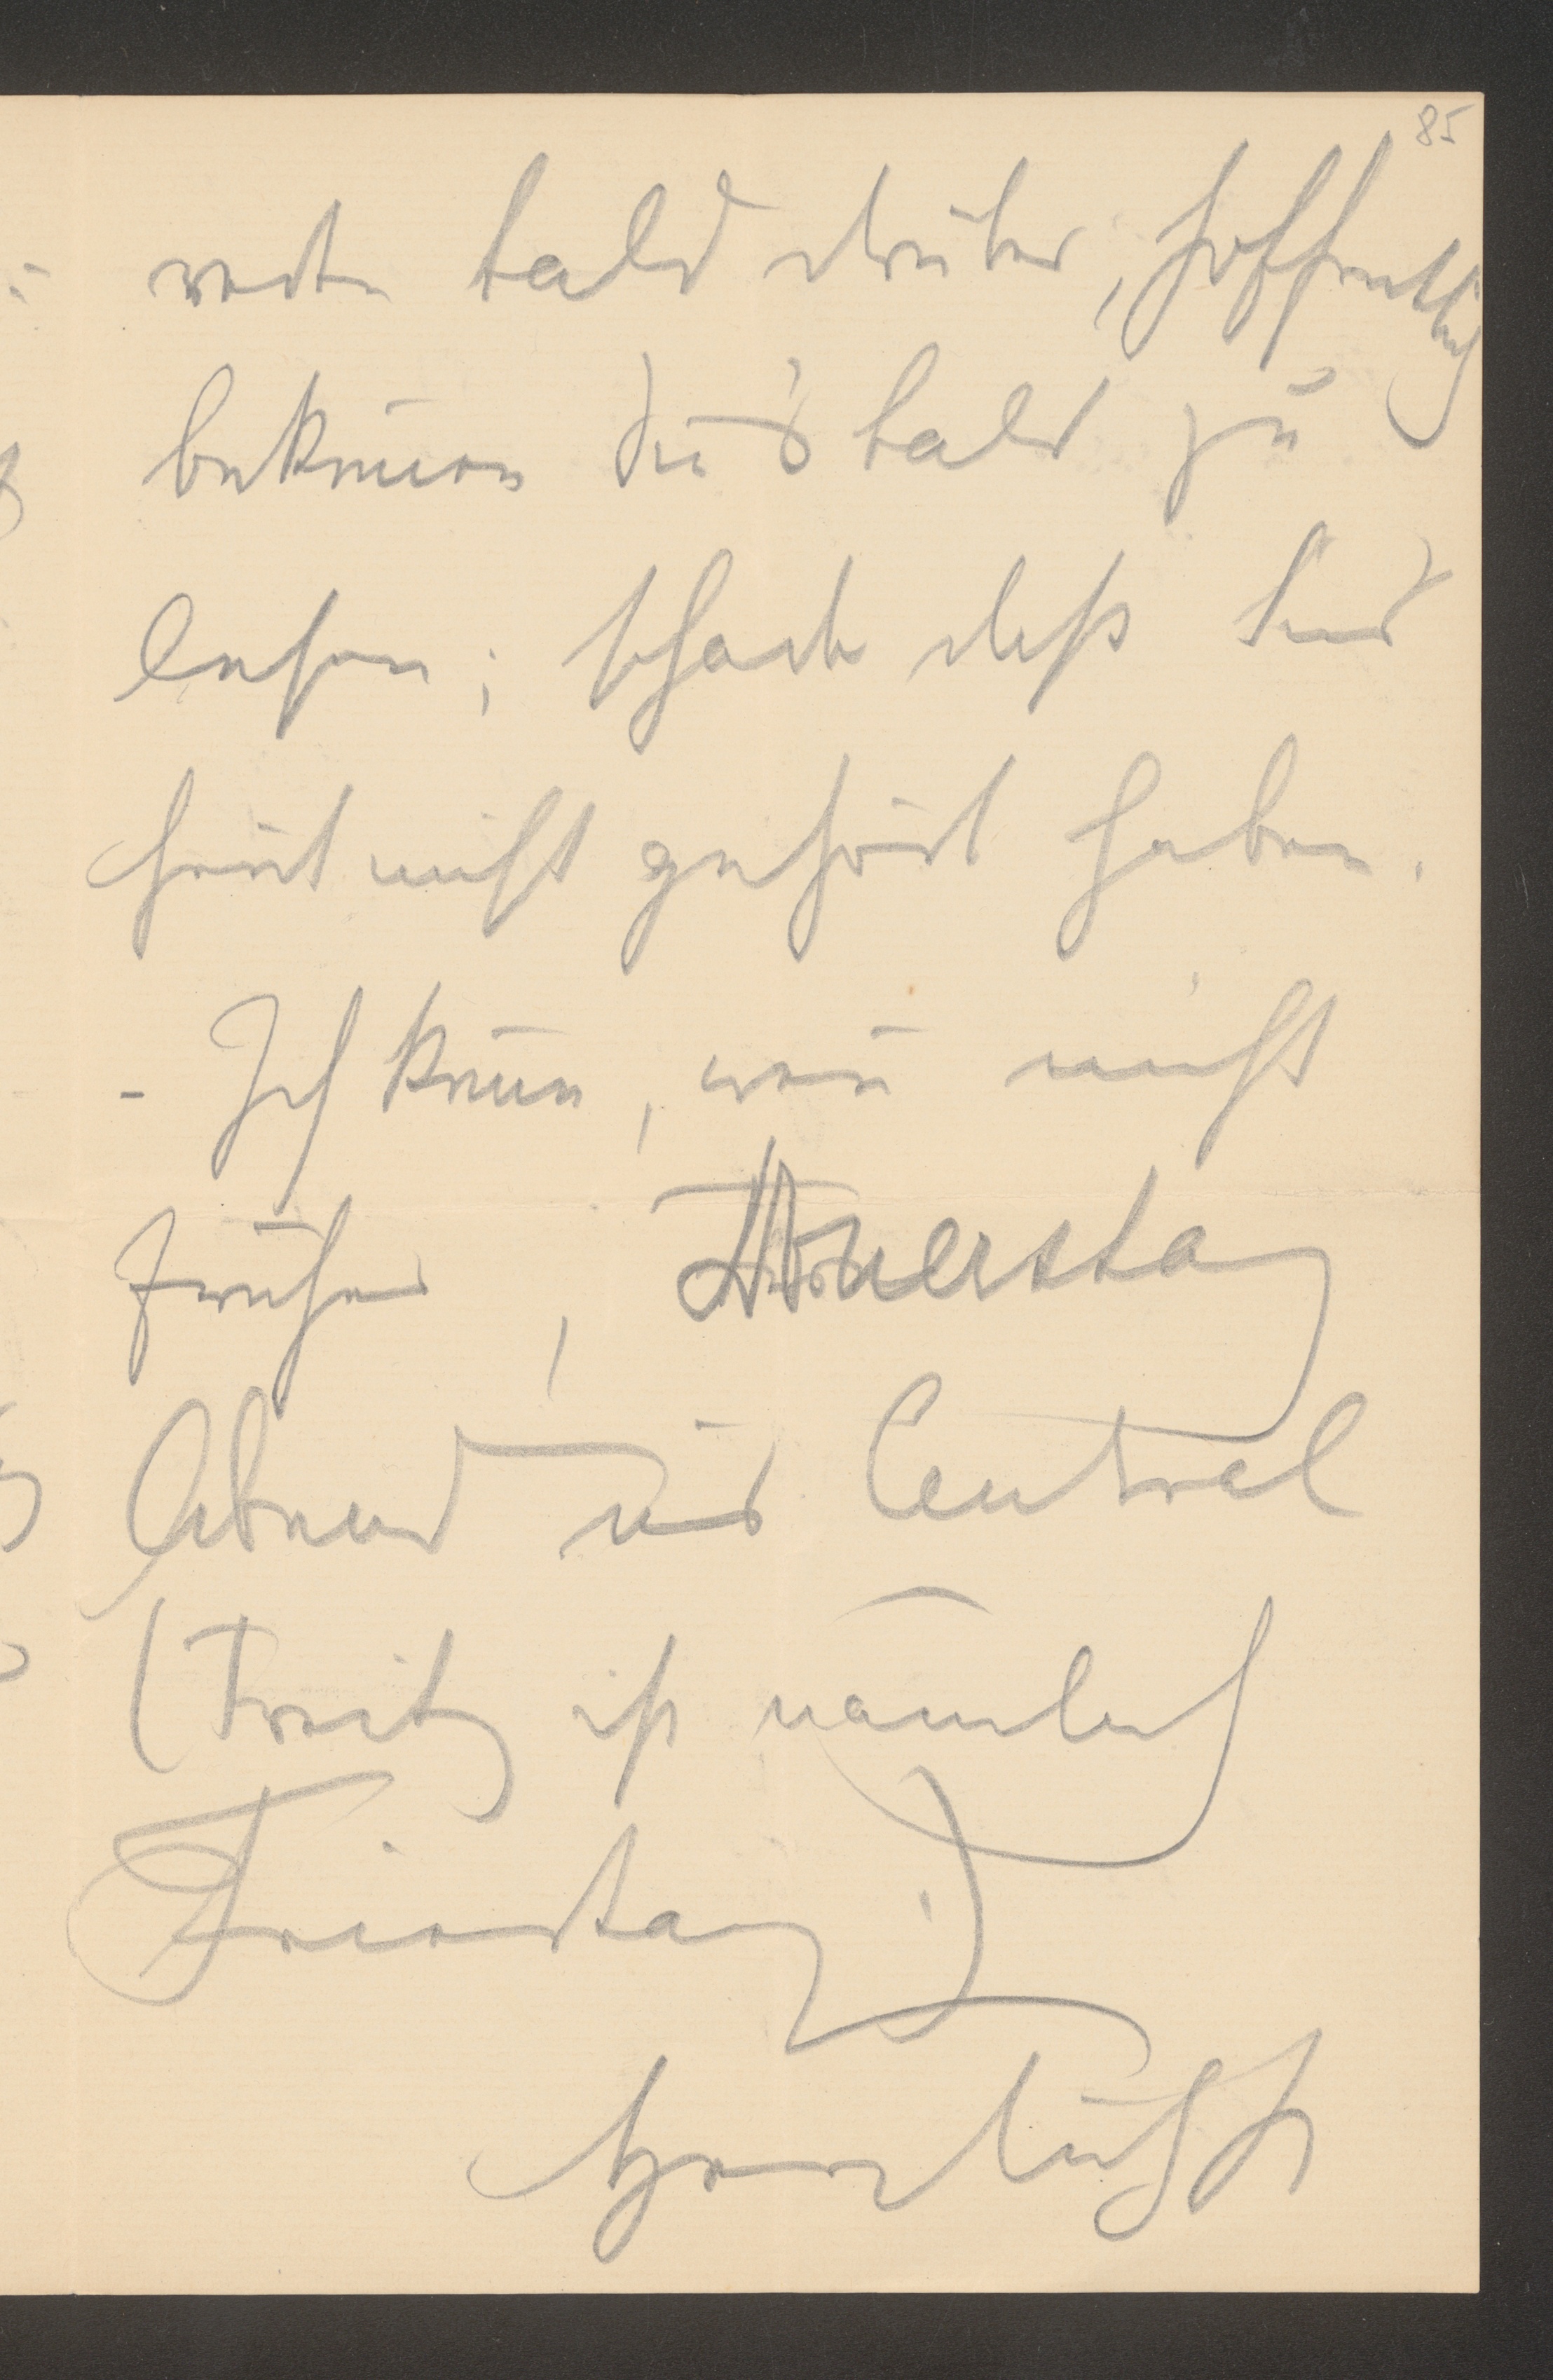 85
reden bald drüber, hoffentlich
bekom̅en Sie's bald zu
lesen; schade daß Sie's
heut nicht gehört haben.
– Ich kom̅e, wen̅ nicht
früher, Donnerstag
Abend ins Central
(Freitag ist nämlich
Feiertag.)
Herzlichst